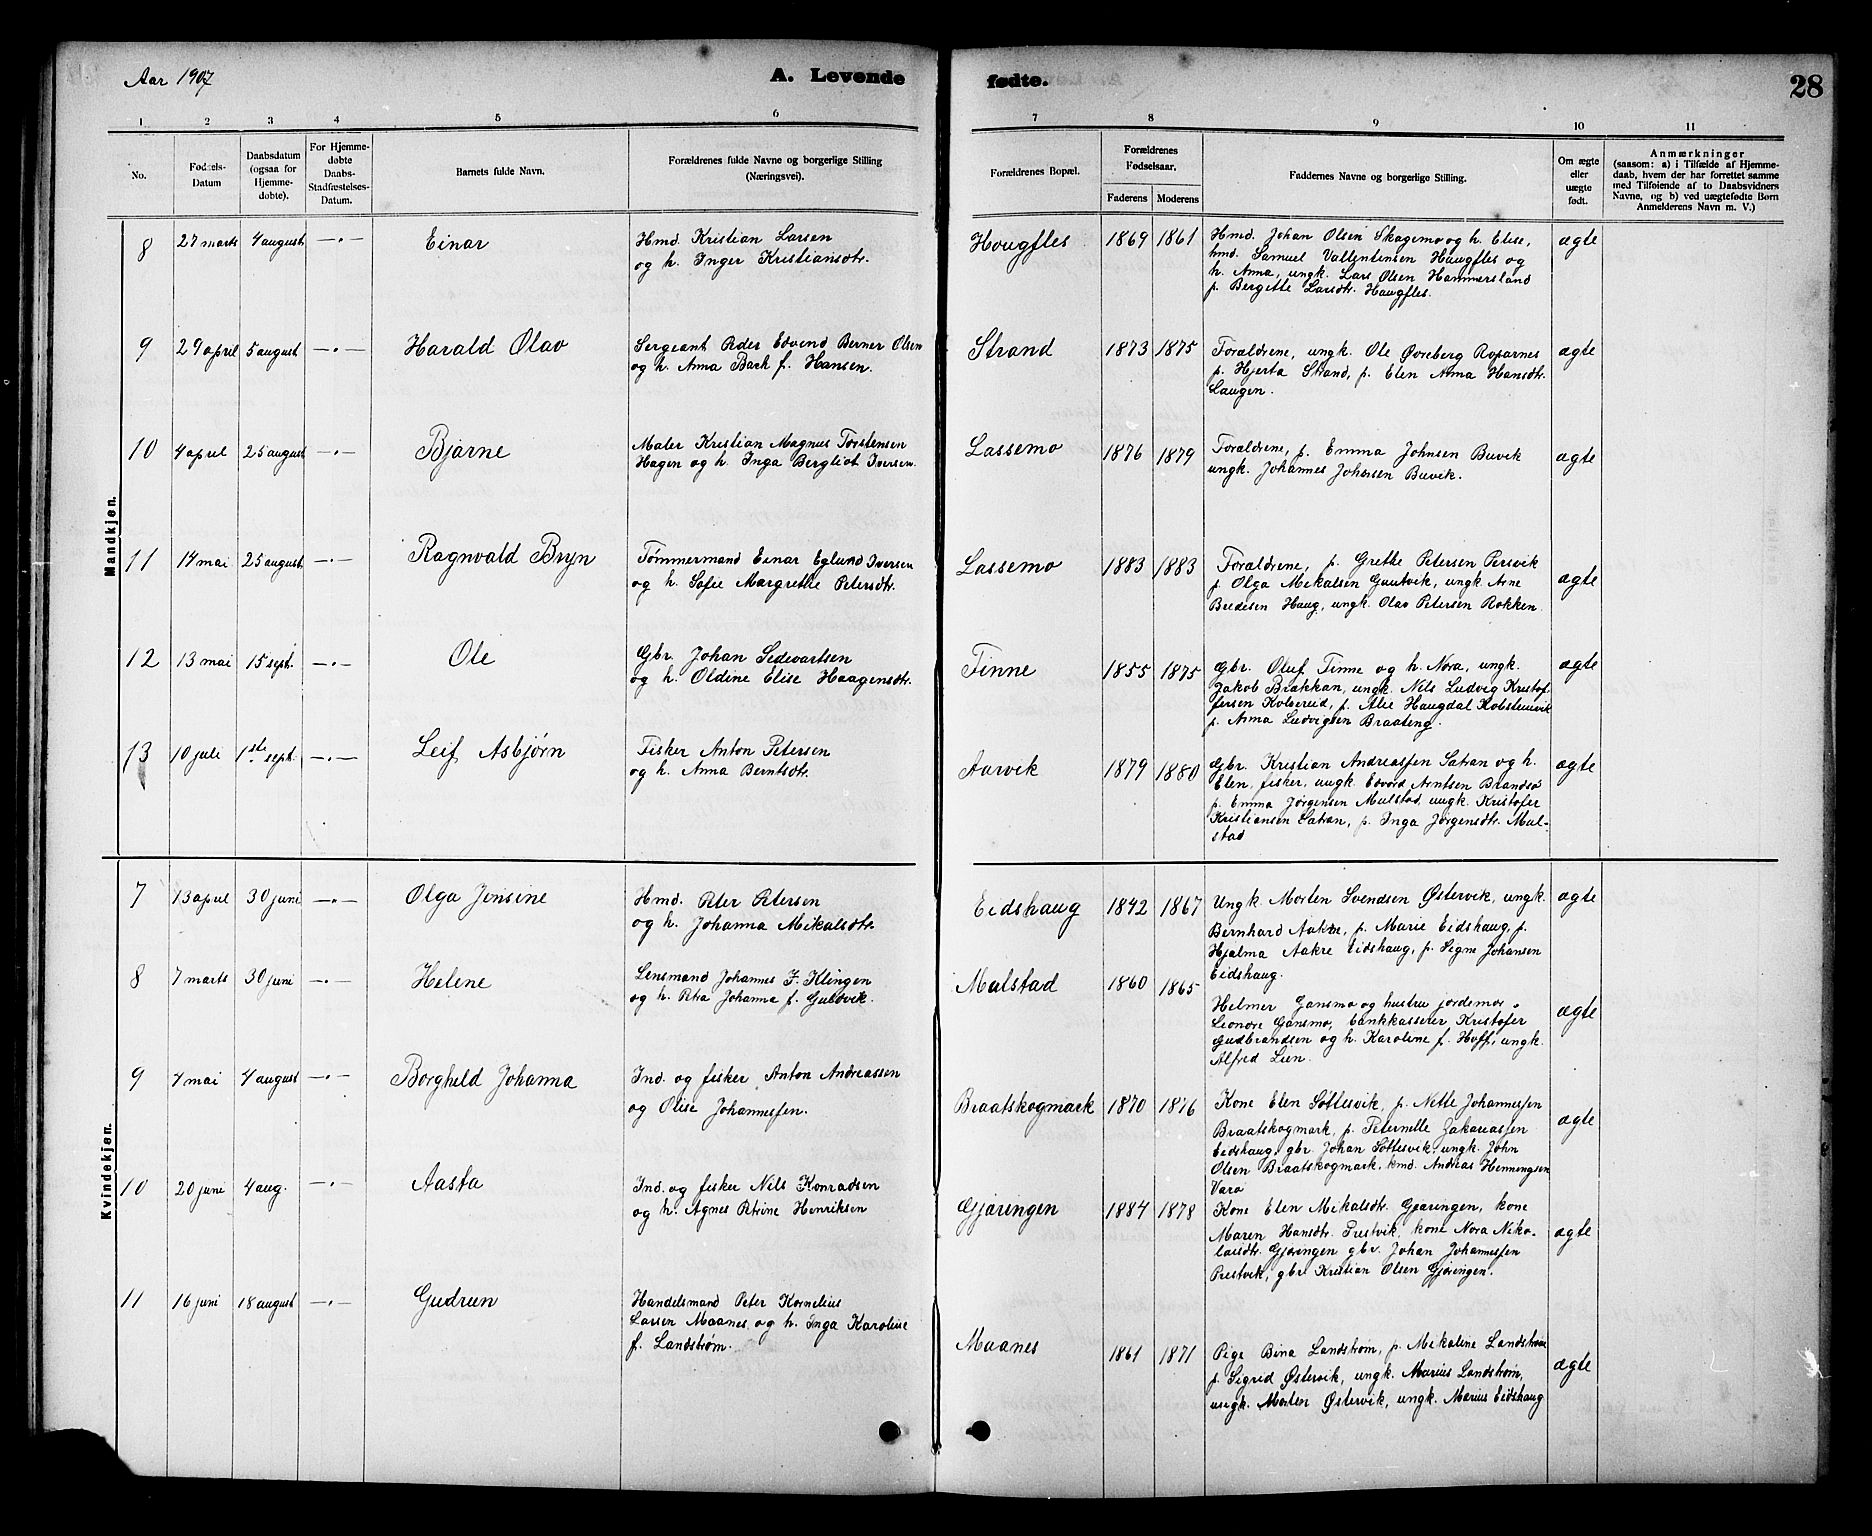 Aar 1907
A. Levende fødte.
28
1 2 3 4 5 6 7 8 9 10 11
No.
Fødsels-Datum
Daabsdatum (ogsaa for Hjemmedøbte).
For Hjemmedøbte Daabs-Stadfæstelses-Datum.
Barnets fulde Navn.
Forældrenes fulde Navne og borgerlige Stilling (Næringsvei).
Forældrenes Bopæl.
Forældrenes Fødselsaar.
Faderens Moderens
Faddernes Navne og borgerlige Stilling.
Om ægte eller uægte født.
Anmærkninger
(saasom: a) i Tilfælde af Hjemmedaab, hvem der har forrettet samme med Tilføiende af to Daabsvidners Navne, og b) ved uægtefødte Børn Anmelderens Navn m. V.)
Mandkjøn.
8 27 marts 4 august —·— Einar
Hmd. Kristian Larsen
og h. Inger Kristiansdtr.
Hougfles 1869 1861
Hmd. Johan Olsen Skagemo og h. Elise,
hmd. Samuel Vallentensen Haugfles og
h. Anna, ungk. Lars Olsen Hammersland
p. Bergitte Larsdtr. Haugfles.
ægte
9 29 april 5 august —·— Harald Olav
Sergeant Peder Edvend Berner Olsen
og h. Anna Bark f. Hansen.
Strand 1873 1875
Forældrene, ungk. Ole Øvreberg Roparnes
p. Hjerta Strand, p. Elen Anna Hansdtr.
Laugen.
ægte
10 4 april 25 august —·— Bjarne
Maler Kristian Magnus Torstensen
Hagen og h. Inga Bergliot Iversen.
Lassemo 1876 1879
Forældrene, p. Emma Johnsen Buvik
ungk. Johannes Johnsen Buvik.
ægte
11 14 mai 25 august —·— Ragnvald Bryn
Tømmermand Einar Eglund Iversen
og h. Sofie Margrethe Petersdtr.
Lassemo 1883 1883
Forældrene, p. Grethe Petersen Persvik
p. Olga Mikalsen Guutvik, ungk. Arne
Bredesen Haug, ungk. Olav Petersen Rokken.
ægte
12 13 mai 15 sept. —·— Ole
Gbr. Johan Sedevartsen
og h. Oldine Elise Haagensdtr.
Finne 1855 1875
Gbr. Oluf Finne og h. Nora, ungk.
Jakob Brækkan, ungk. Nils Ludvig Kristof-
fersen Kolsereid, p. Alie Haugdal Kobstenvik
p. Anna Ludvigsen Braateng.
ægte
13 10 juli 1ste sept. —·— Leif Asbjørn
Fisker Anton Petersen
og h. Anna Berntsdtr.
Aarvik 1879 1880
Gbr. Kristian Andreassen Satran og h.
Elen, fisker, ungk. Edvard Arntsen Brandso
p. Emma Jørgensen Mulstad, ungk. Kristofer
Kristiansen Satran, p. Inga Jørgensdtr. Mul-
stad
ægte
Kvindekjøn.
7 13 april 30 juni —·— Olga Jensine
Hmd. Peter Petersen
og h. Johanna Mikalsdtr.
Eidshaug 1842 1867
Ungk. Morten Svendsen Østervik, ungk.
Bernhard Aakre, p. Marie Eidshaug, p.
Hjalma Aakre Eidshaug, p. Signe Johansen
Eidshaug.
ægte
8 7 marts 30 juni —·— Helene
Lensmand Johannes F. Klingen
og h. Petra Johanna f. Guldvik.
Mulstad 1860 1865
Helmer Gansmo og hustru jordemor
Leonore Gansmo, bankkasserer Kristofer
Gudbrandsen og h. Karoline f. Hoff, ungk.
Alfred Lien.
ægte
9 7 mai 4 august —·— Borghild Johanna
Ind. og fisker Anton Andreassen
og Olise Johannessen.
Braatskogmark 1870 1876
Kone Elen Sottesvik, p. Nette Johannessen
Braatskogmark, p. Peternelle Zakariassen
Eidshaug, gbr. Johan Sottesvik, ungk. John
Olsen Braatskogmark, kmd. Andreas Henningsen
Varø
ægte
10 20 juni 4 aug. —·— Aasta
Ind. og fisker Nils Konradsen
og h. Agnes Petrine Henriksen
Gjæringen 1884 1878
Kone Elen Mikalsdtr. Gjæringen, kone
Maren Hansdtr. Prestvik, kone Nora Niko-
laisdtr. Gjæringen gbr. Johan Johannessen
Prestvik, gbr. Kristian Olsen Gjæringen.
ægte
11 16 juni 18 august —·— Gudrun
Handelsmand Peter Kornelius
Larsen Maanes og h. Inga Karoline
f. Landstrøm.
Maanes 1861 1871
Pige Bina Landstrøm, p. Mikaline Landstrøm
p. Sigrid Østervik, ungk. Marius Landstrøm,
ungk. Morten Østervik, ungk. Marius Eidshaug
ægte